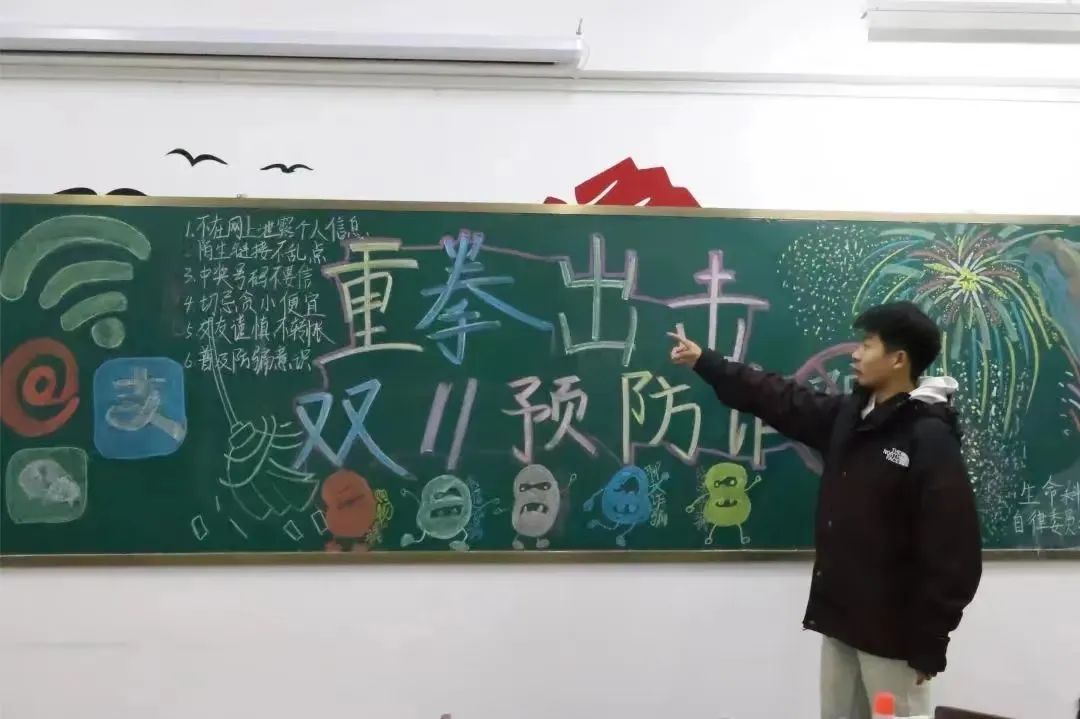 1.不在网上泄露个人信息
2.陌生链接不乱点
3.中央号码不要信
4.切忌贪小便宜
5.交友谨慎不转账
6.普及防骗意识
重拳出击
双11预防诈
支
@
THE NORTH FACE
生命科
自律委员